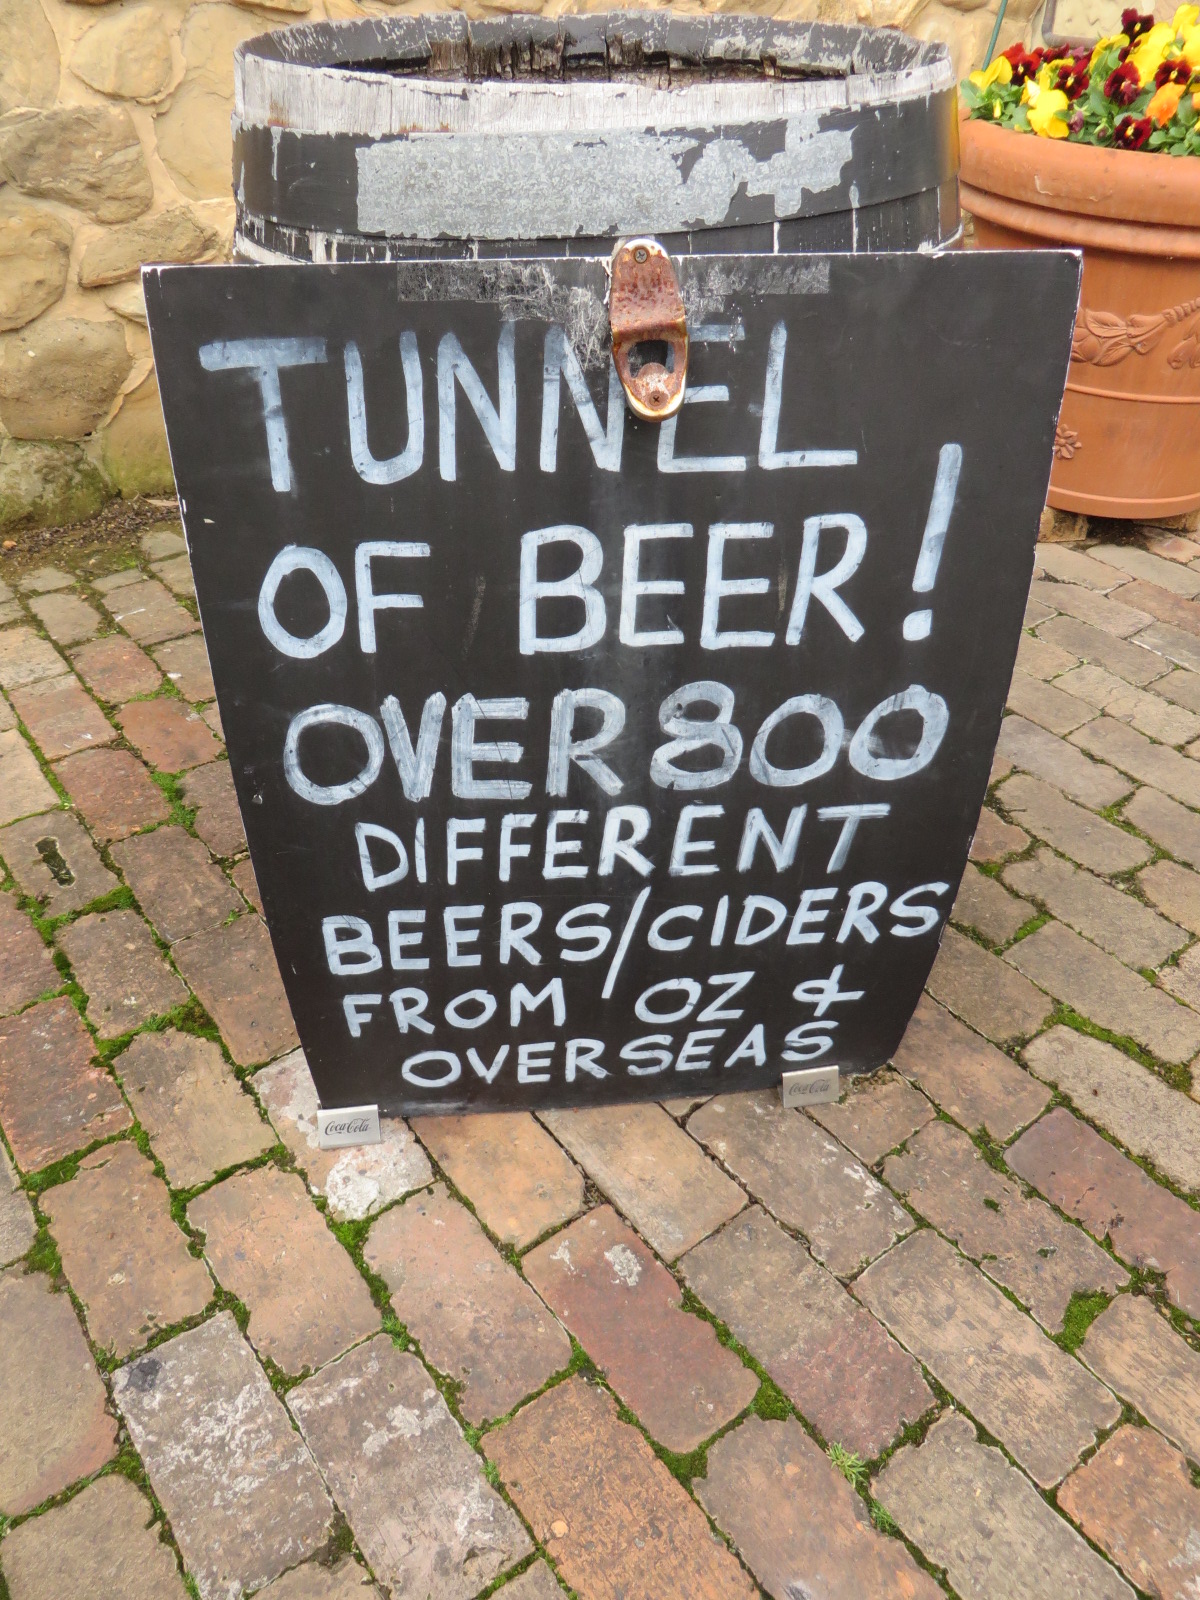 TUNNEL
OF BEER!
OVER 800
DIFFERENT
BEERS/CIDERS
FROM OZ &
OVERSEAS
Coca-Cola
Coca-Cola